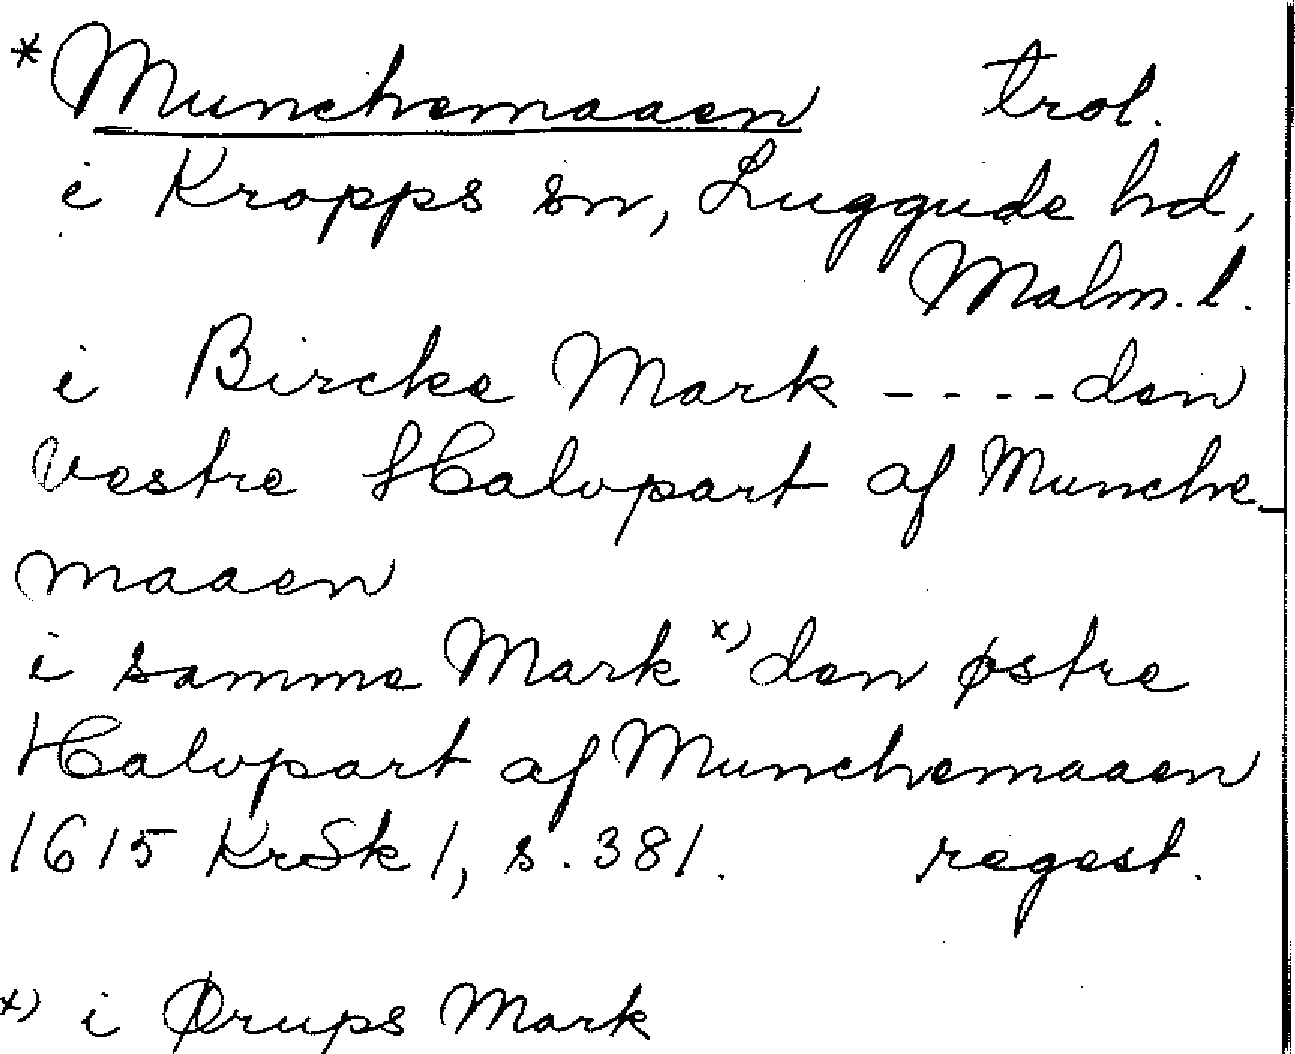 *Munchemaaen trol.
i Kropps sn, Luggude hd,
Malm. l.
i Bircke Mark - - - - den
Vestre Halvpart af Munche-
maaen
i samme Mark x) den østre
Halvpart af Munchemaaen
1615 KrSk 1, s. 381. regest.
x) i Ørups Mark